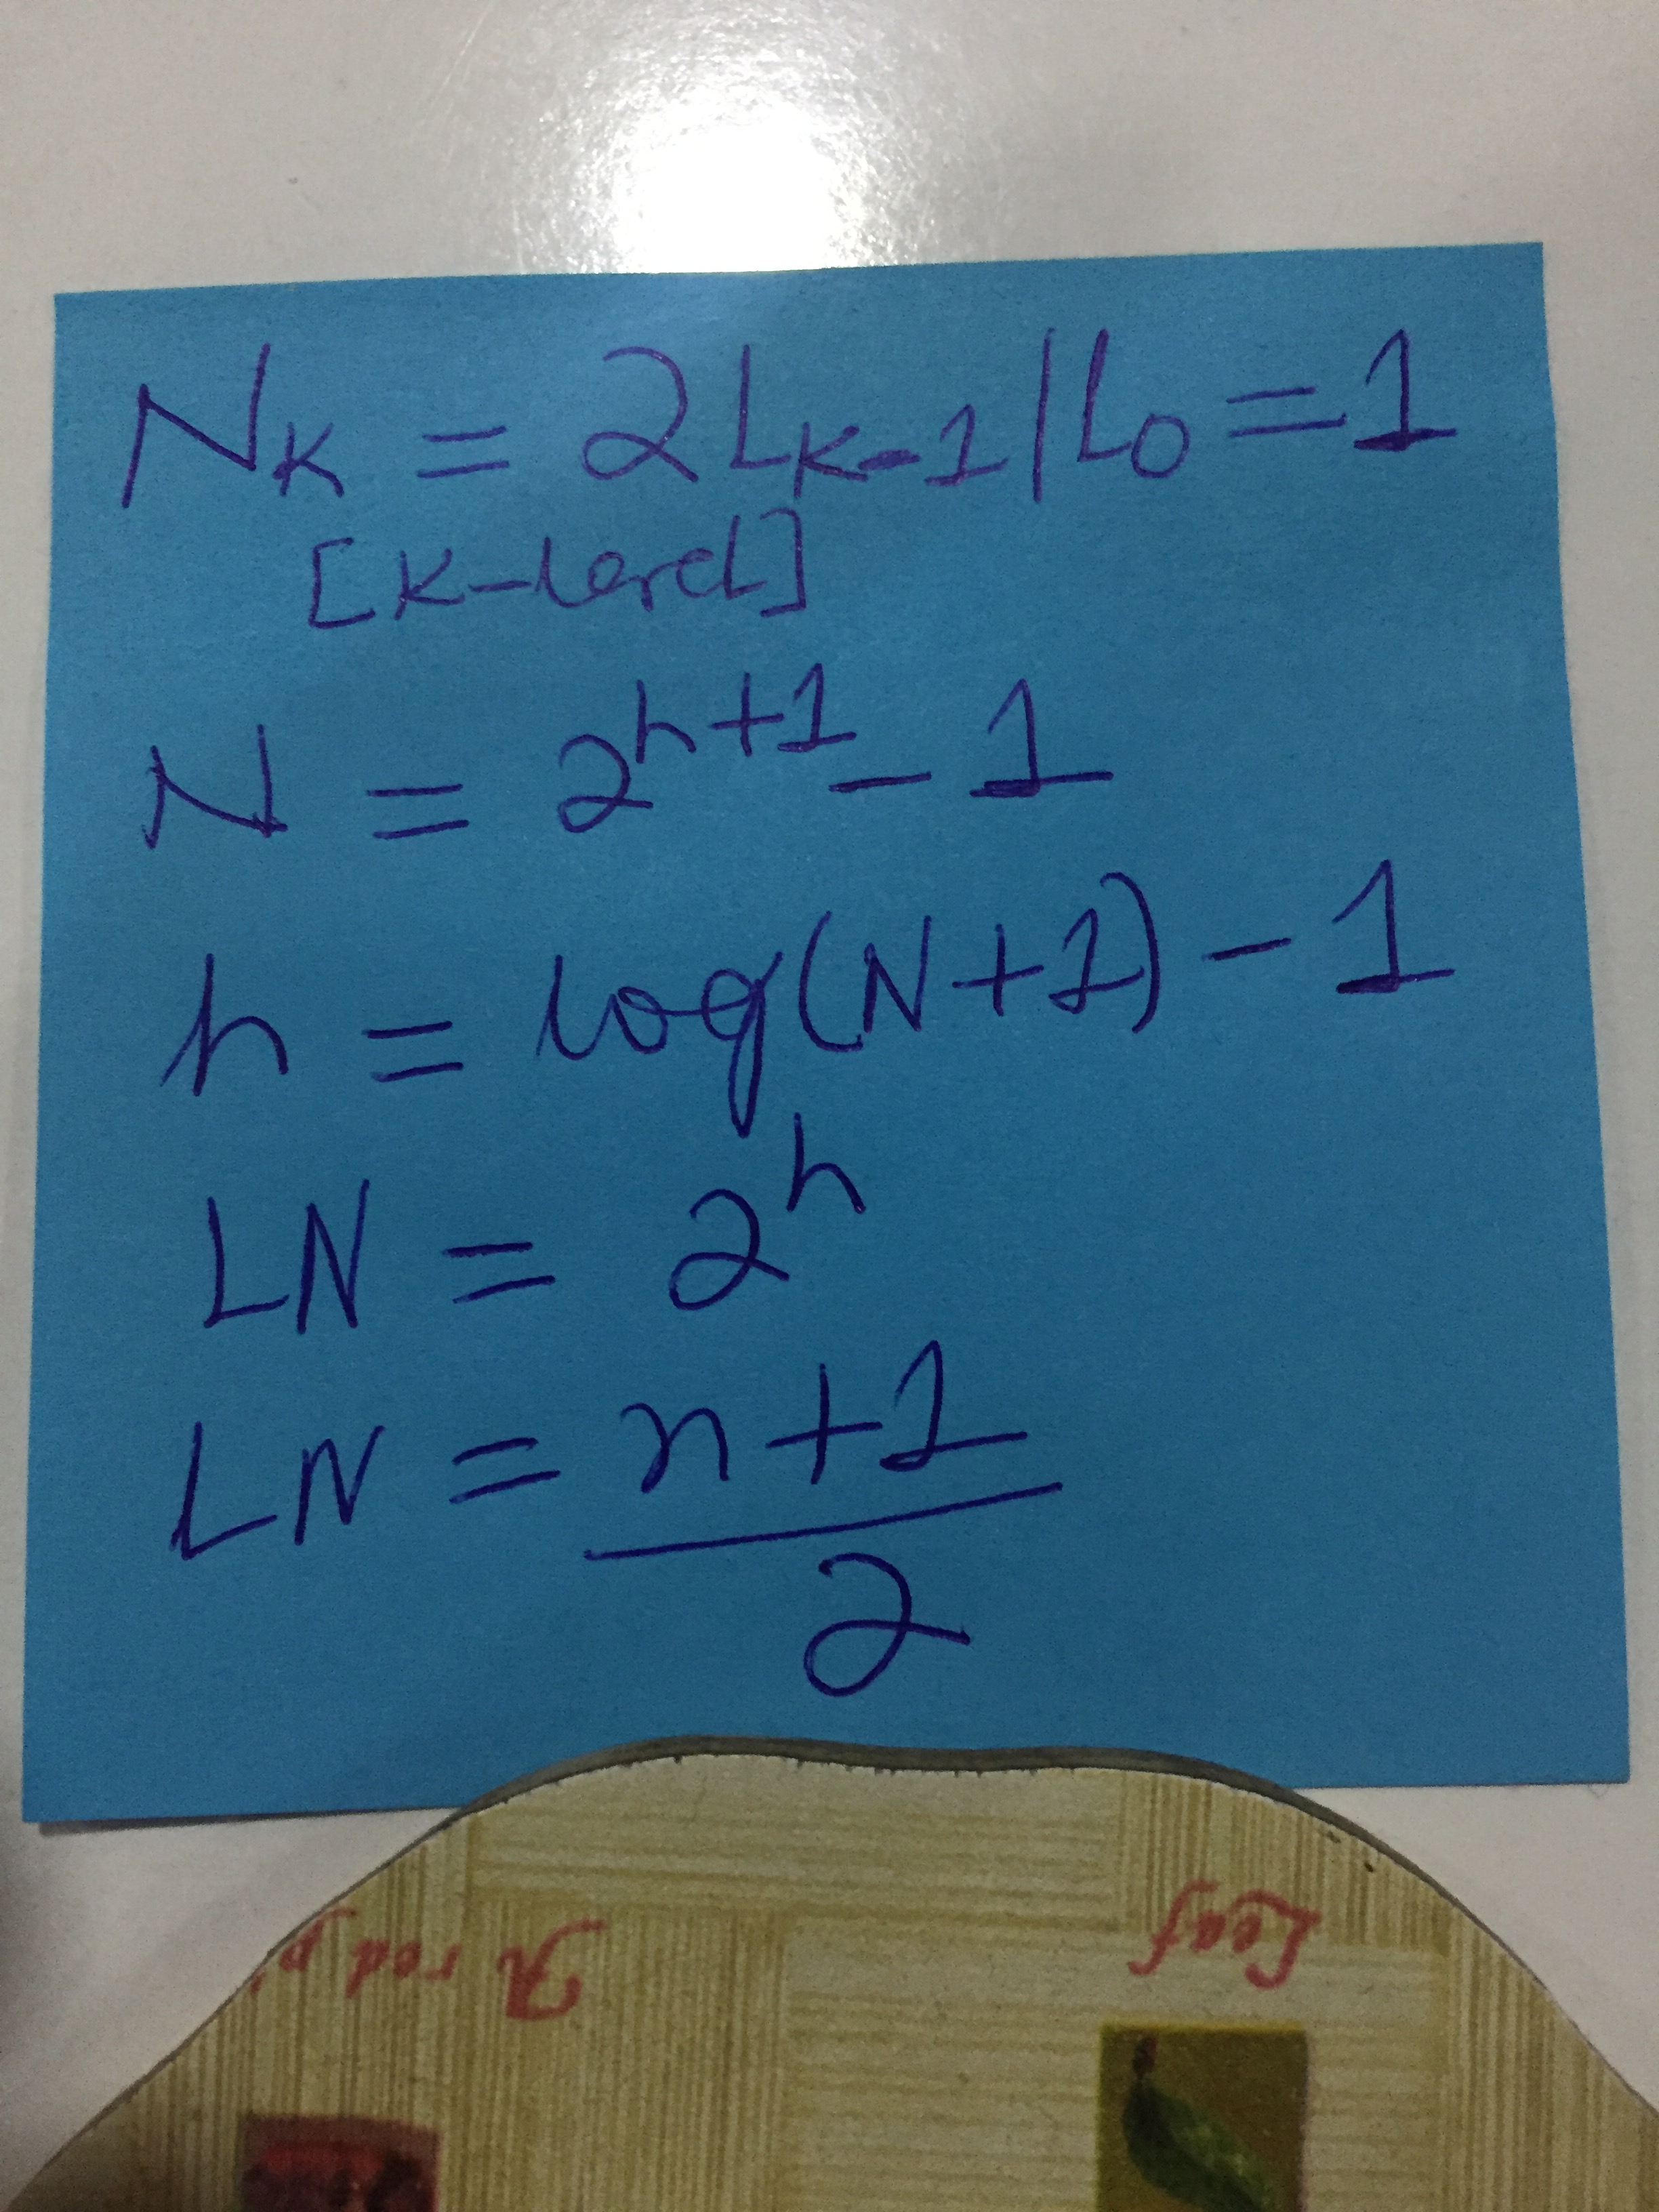 N_K = 2L_{K-1} | L_0 = 1
[K-level]
N = 2^{h+1} - 1
h = log(N+1) - 1
LN = 2^h
LN = \frac{n+1}{2}
A red
Leaf